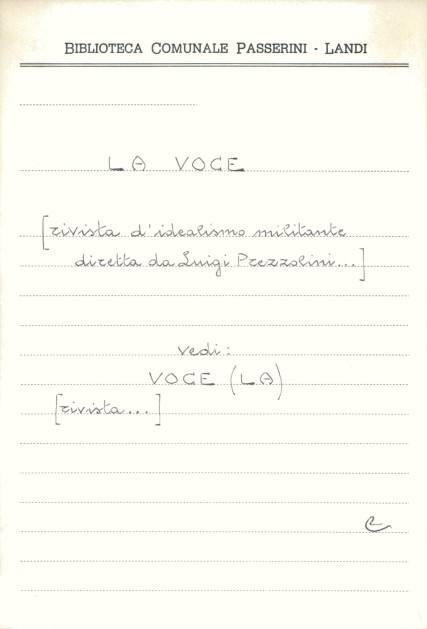 BIBLIOTECA COMUNALE PASSERINI - LANDI
LA VOCE
[rivista d'idealismo militante
diretta da Luigi Prezzolini...]
vedi:
VOCE (LA)
[rivista...]